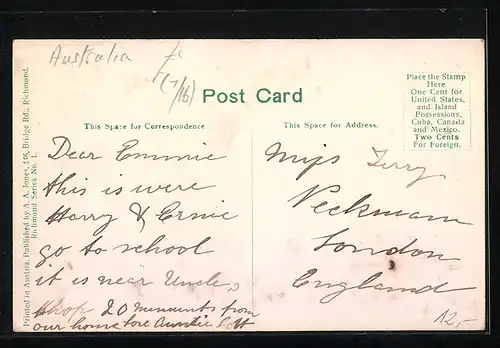 Australia
(7/16)
Post Card
Place the Stamp
Here
One Cent for
United States,
and Island
Possessions,
Cuba, Canada
and Mexico.
Two Cents
For Foreign.
This Space for Correspondence
This Space for Address.
Printed in Austria. Published by A. A. Jones, 146, Bridge Rd., Richmond.
Richmond Series No. 1.
Dear Emmie
this is were
Harry & Ernie
go to school
it is near Uncles
shop 20 minuets from
our house love Auntie
Miss Terry
Peckmam
London
England
12,-